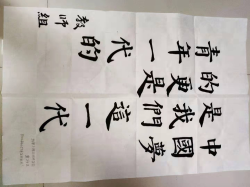 中國夢
是我們
這一代
的更是
青年一
代的
教師組